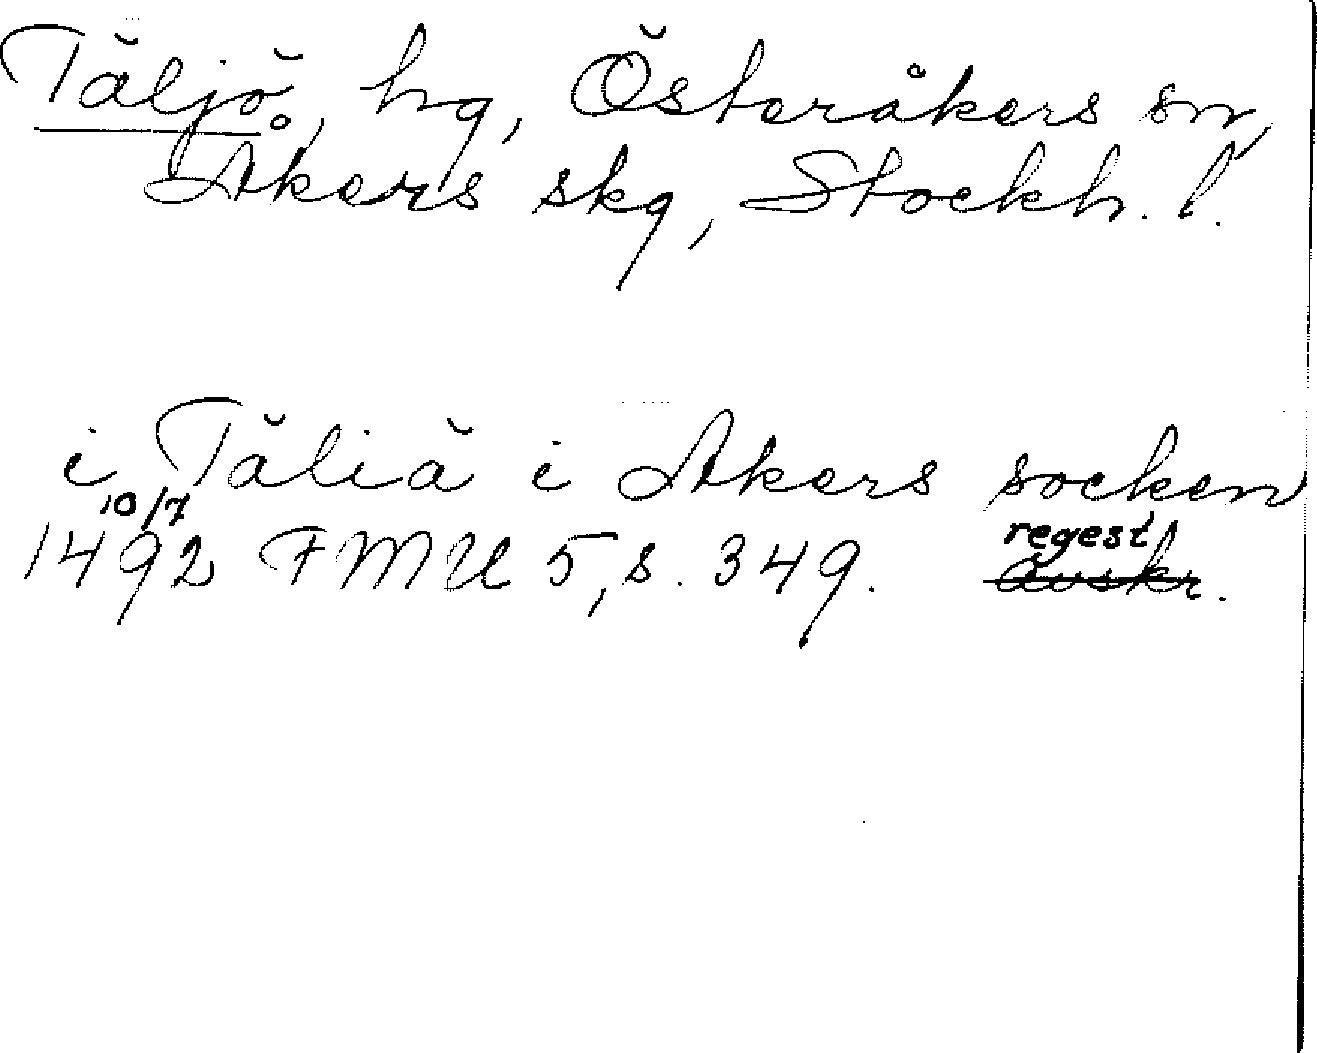 Täljö, hg, Österåkers sn,
Åkers skg, Stockh. l.
i Täliä i Akers socken
10/7
1492 FMU 5, s. 349. regest
avskr.